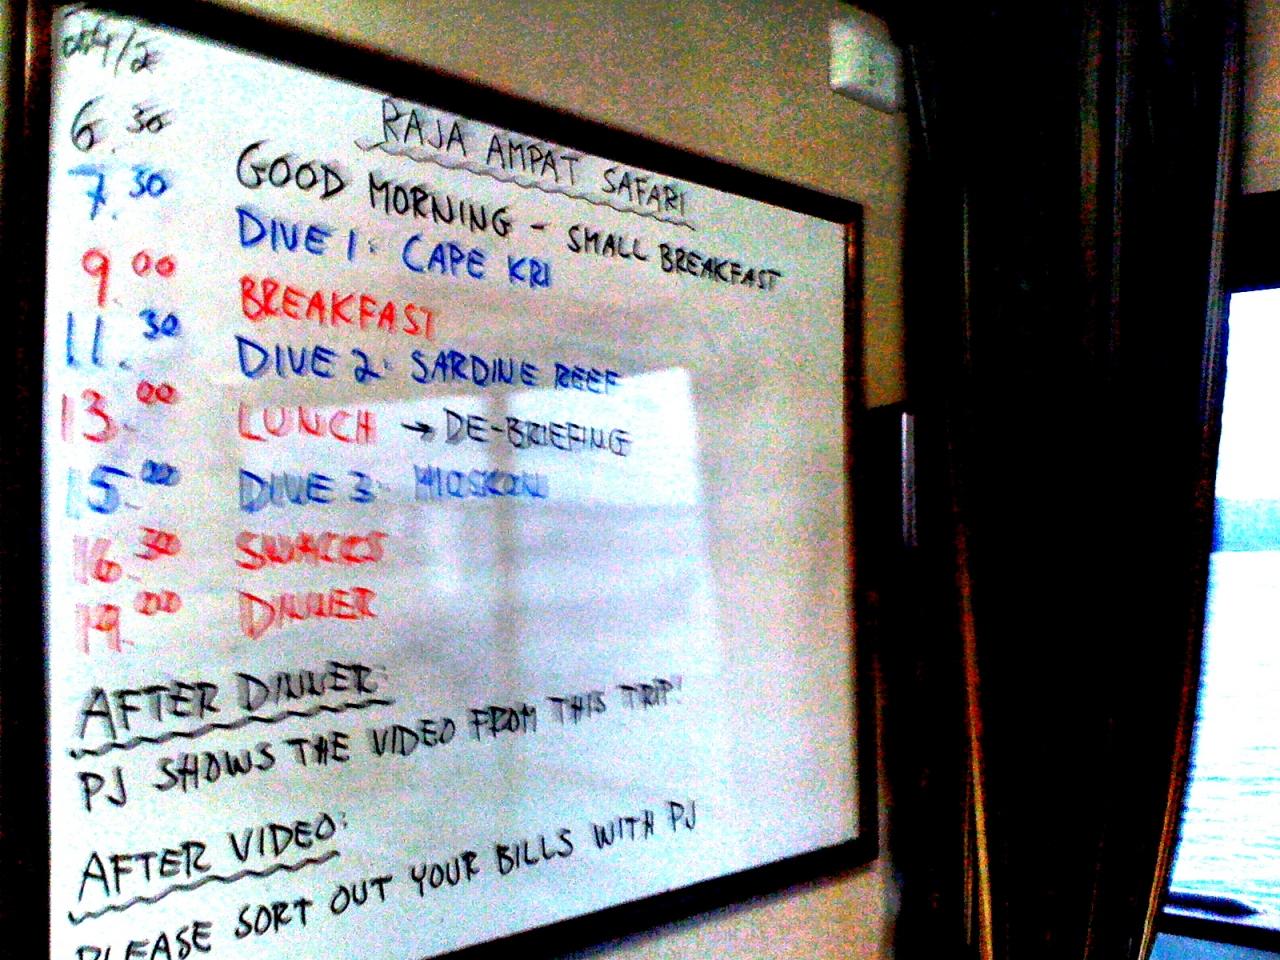 RAJA AMPAT SAFARI
6.30 GOOD MORNING - SMALL BREAKFAST
7.30 DIVE 1: CAPE KRI
9.00 BREAKFAST
11.30 DIVE 2: SARDINE REEF
13.00 LUNCH → DE-BRIEFING
15.00 DIVE 3: MIOSKON
16.30 SNACKS
19.00 DINNER
AFTER DINNER:
PJ SHOWS THE VIDEO FROM THIS TRIP!
AFTER VIDEO:
PLEASE SORT OUT YOUR BILLS WITH PJ